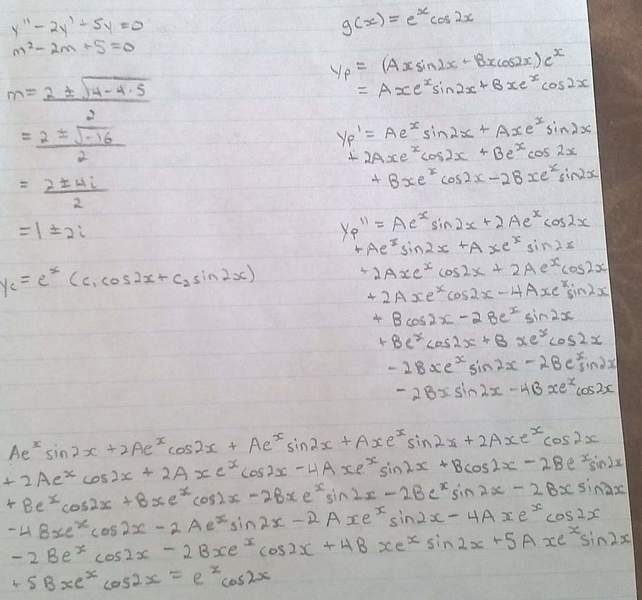 y'' - 2y' + 5y = 0
m² - 2m + 5 = 0
m = (2 ± √(4-4·5))/2
= (2 ± √-16)/2
= (2 ± 4i)/2
= 1 ± 2i
yc = e^x (c₁cos2x + c₂sin2x)
g(x) = e^x cos2x
yp = (Axsin2x + Bxcos2x)e^x
= Axe^x sin2x + Bxe^x cos2x
yp' = Ae^x sin2x + Axe^x sin2x
+ 2Axe^x cos2x + Be^x cos2x
+ Bxe^x cos2x - 2Bxe^x sin2x
yp'' = Ae^x sin2x + 2Ae^x cos2x
+ Ae^x sin2x + Axe^x sin2x
+ 2Axe^x cos2x + 2Ae^x cos2x
+ 2Axe^x cos2x - 4Axe^x sin2x
+ Bcos2x - 2Be^x sin2x
+ Be^x cos2x + Bxe^x cos2x
- 2Bxe^x sin2x - 2Be^x sin2x
- 2Bxsin2x - 4Bxe^x cos2x
Ae^x sin2x + 2Ae^x cos2x + Ae^x sin2x + Axe^x sin2x + 2Axe^x cos2x
+ 2Ae^x cos2x + 2Axe^x cos2x - 4Axe^x sin2x + Bcos2x - 2Be^x sin2x
+ Be^x cos2x + Bxe^x cos2x - 2Bxe^x sin2x - 2Be^x sin2x - 2Bxsin2x
- 4Bxe^x cos2x - 2Ae^x sin2x - 2Axe^x sin2x - 4Axe^x cos2x
- 2Be^x cos2x - 2Bxe^x cos2x + 4Bxe^x sin2x + 5Axe^x sin2x
+ 5Bxe^x cos2x = e^x cos2x